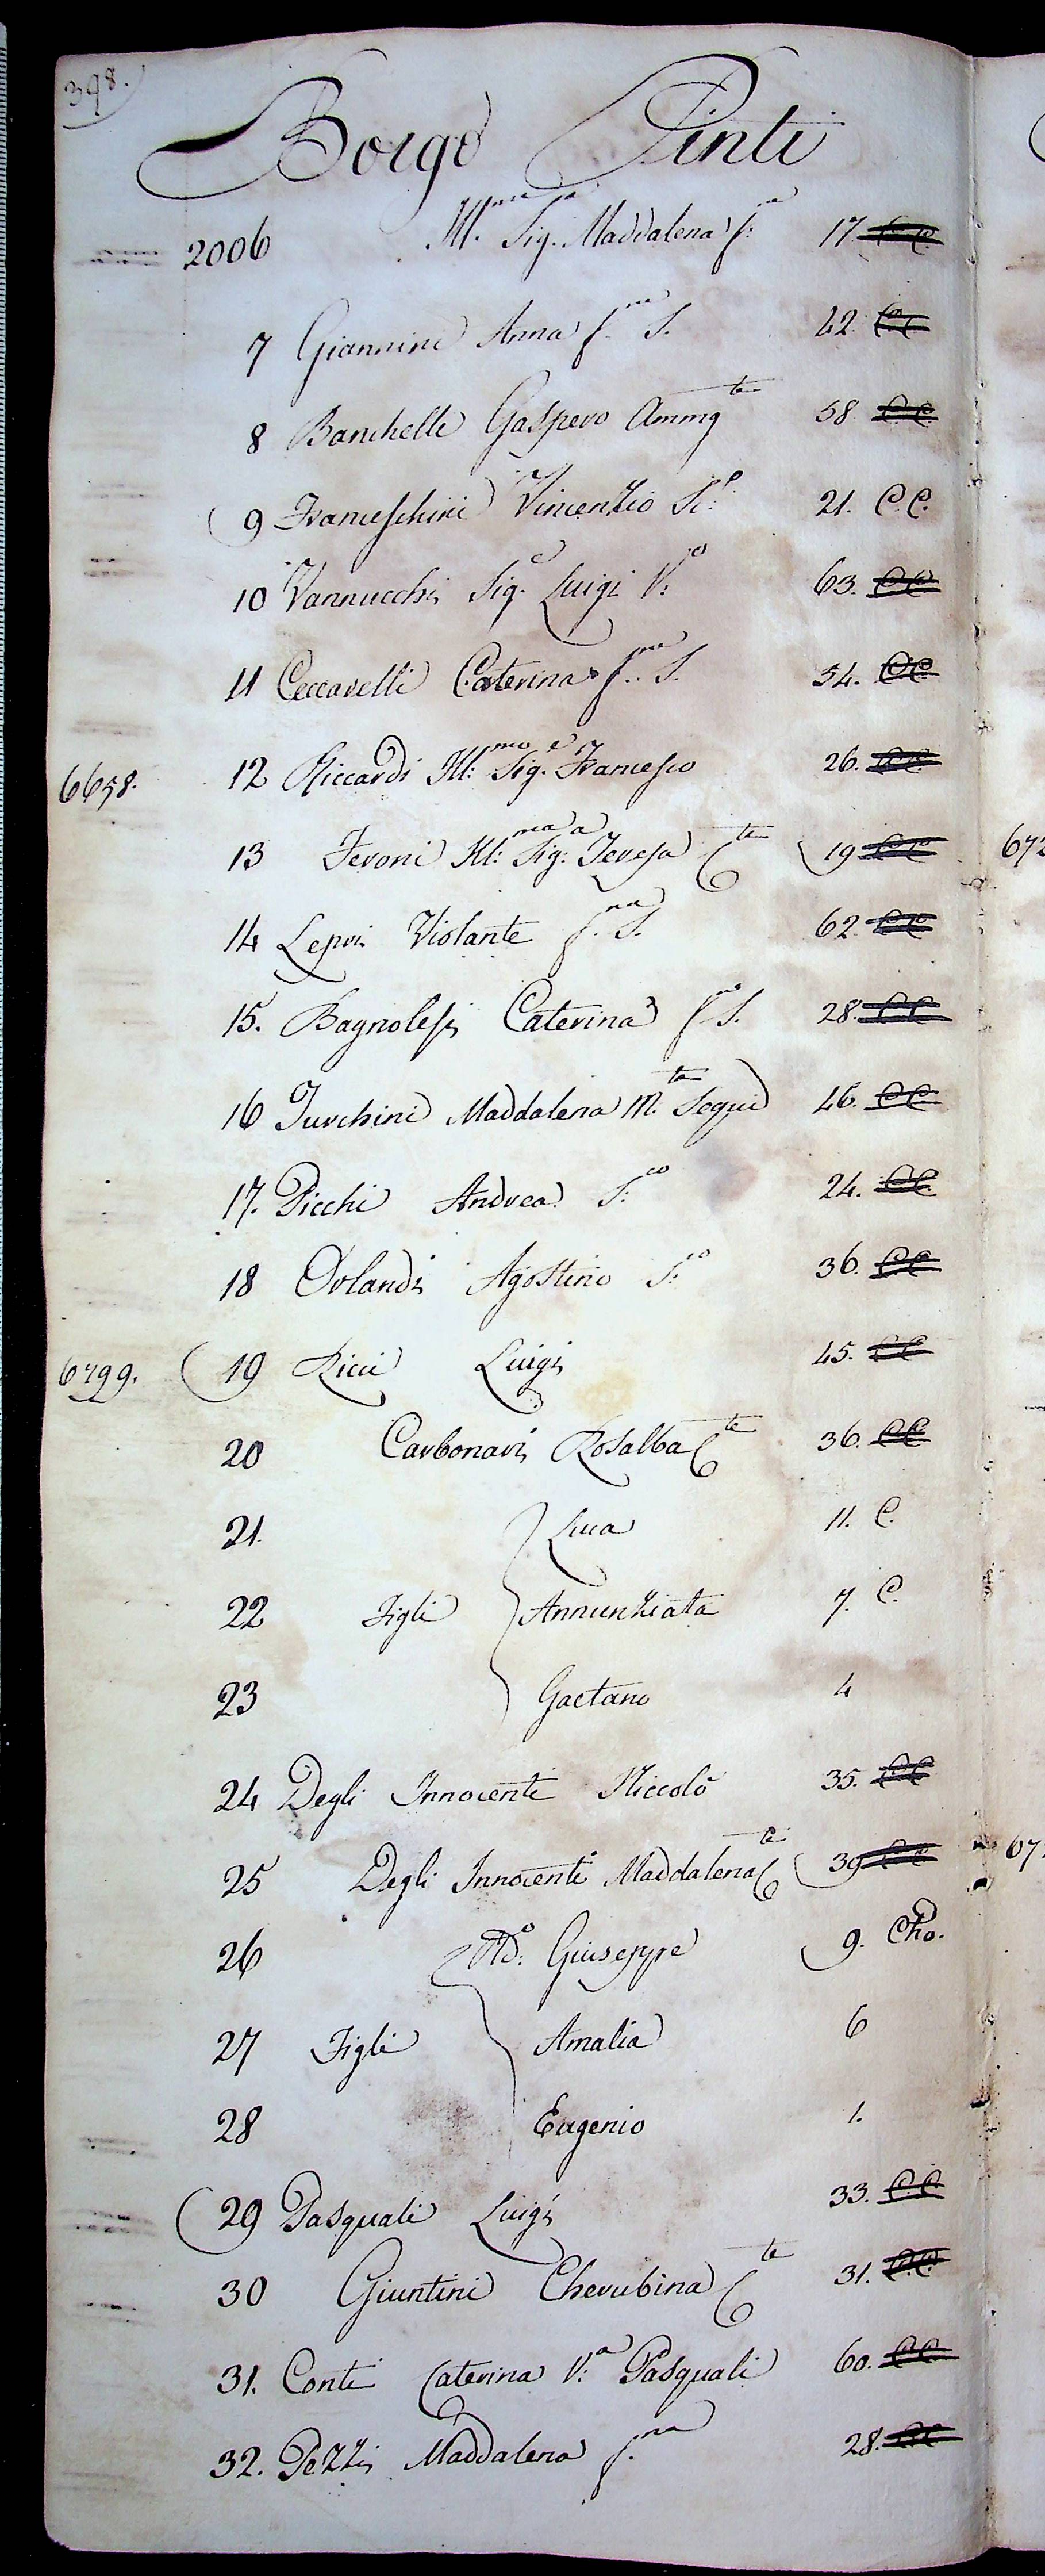 398.
Borgo Pinti
2006 Ill.ma Sig.ra Maddalena f.a 17. C.C.
7 Giannini Anna f.na S. 42. C.C.
8 Banchelli Gaspero Ammg.to 58. C.C.
9 Franceschini Vincenzio Sc.e 21. C.C.
10 Vannucchi Sig.e Luigi V.o 63. C.C.
11 Ceccarelli Caterina f.na S. 54. C.C.
6658. 12 Riccardi Ill:mo Sig.e Francesco 26. C.C.
13 Feroni Ill:ma Sig:a Teresa C.te 19 C.C.
14 Lepri Violante f.na S. 62. C.C.
15. Bagnolesi Caterina f.na S. 28. C.C.
16 Turchini Maddalena M.ta Segui 46. C.C.
17. Picchi Andrea S:co 24. C.C.
18 Orlandi Agostino S:co 36. C.C.
6799. 19 Ricci Luigi 45. C.C.
20 Carbonari Rosalba C.te 36. C.C.
21. Luca 11. C.
22 Figli Annunziata 7. C.
23 Gaetano 4
24 Degli Innocenti Niccolò 35. C.C.
25 Degli Innocenti Maddalena C.te 39 C.C.
26 Giuseppe 9. Cho.
27 Figli Amalia 6
28 Eugenio 1.
29 Pasquali Luigi 33. C.C.
30 Giuntini Cherubina C.te 31. C.C.
31. Conti Caterina V:a Pasquali 60. C.C.
32. Pezzi Maddalena f.na 28. C.C.